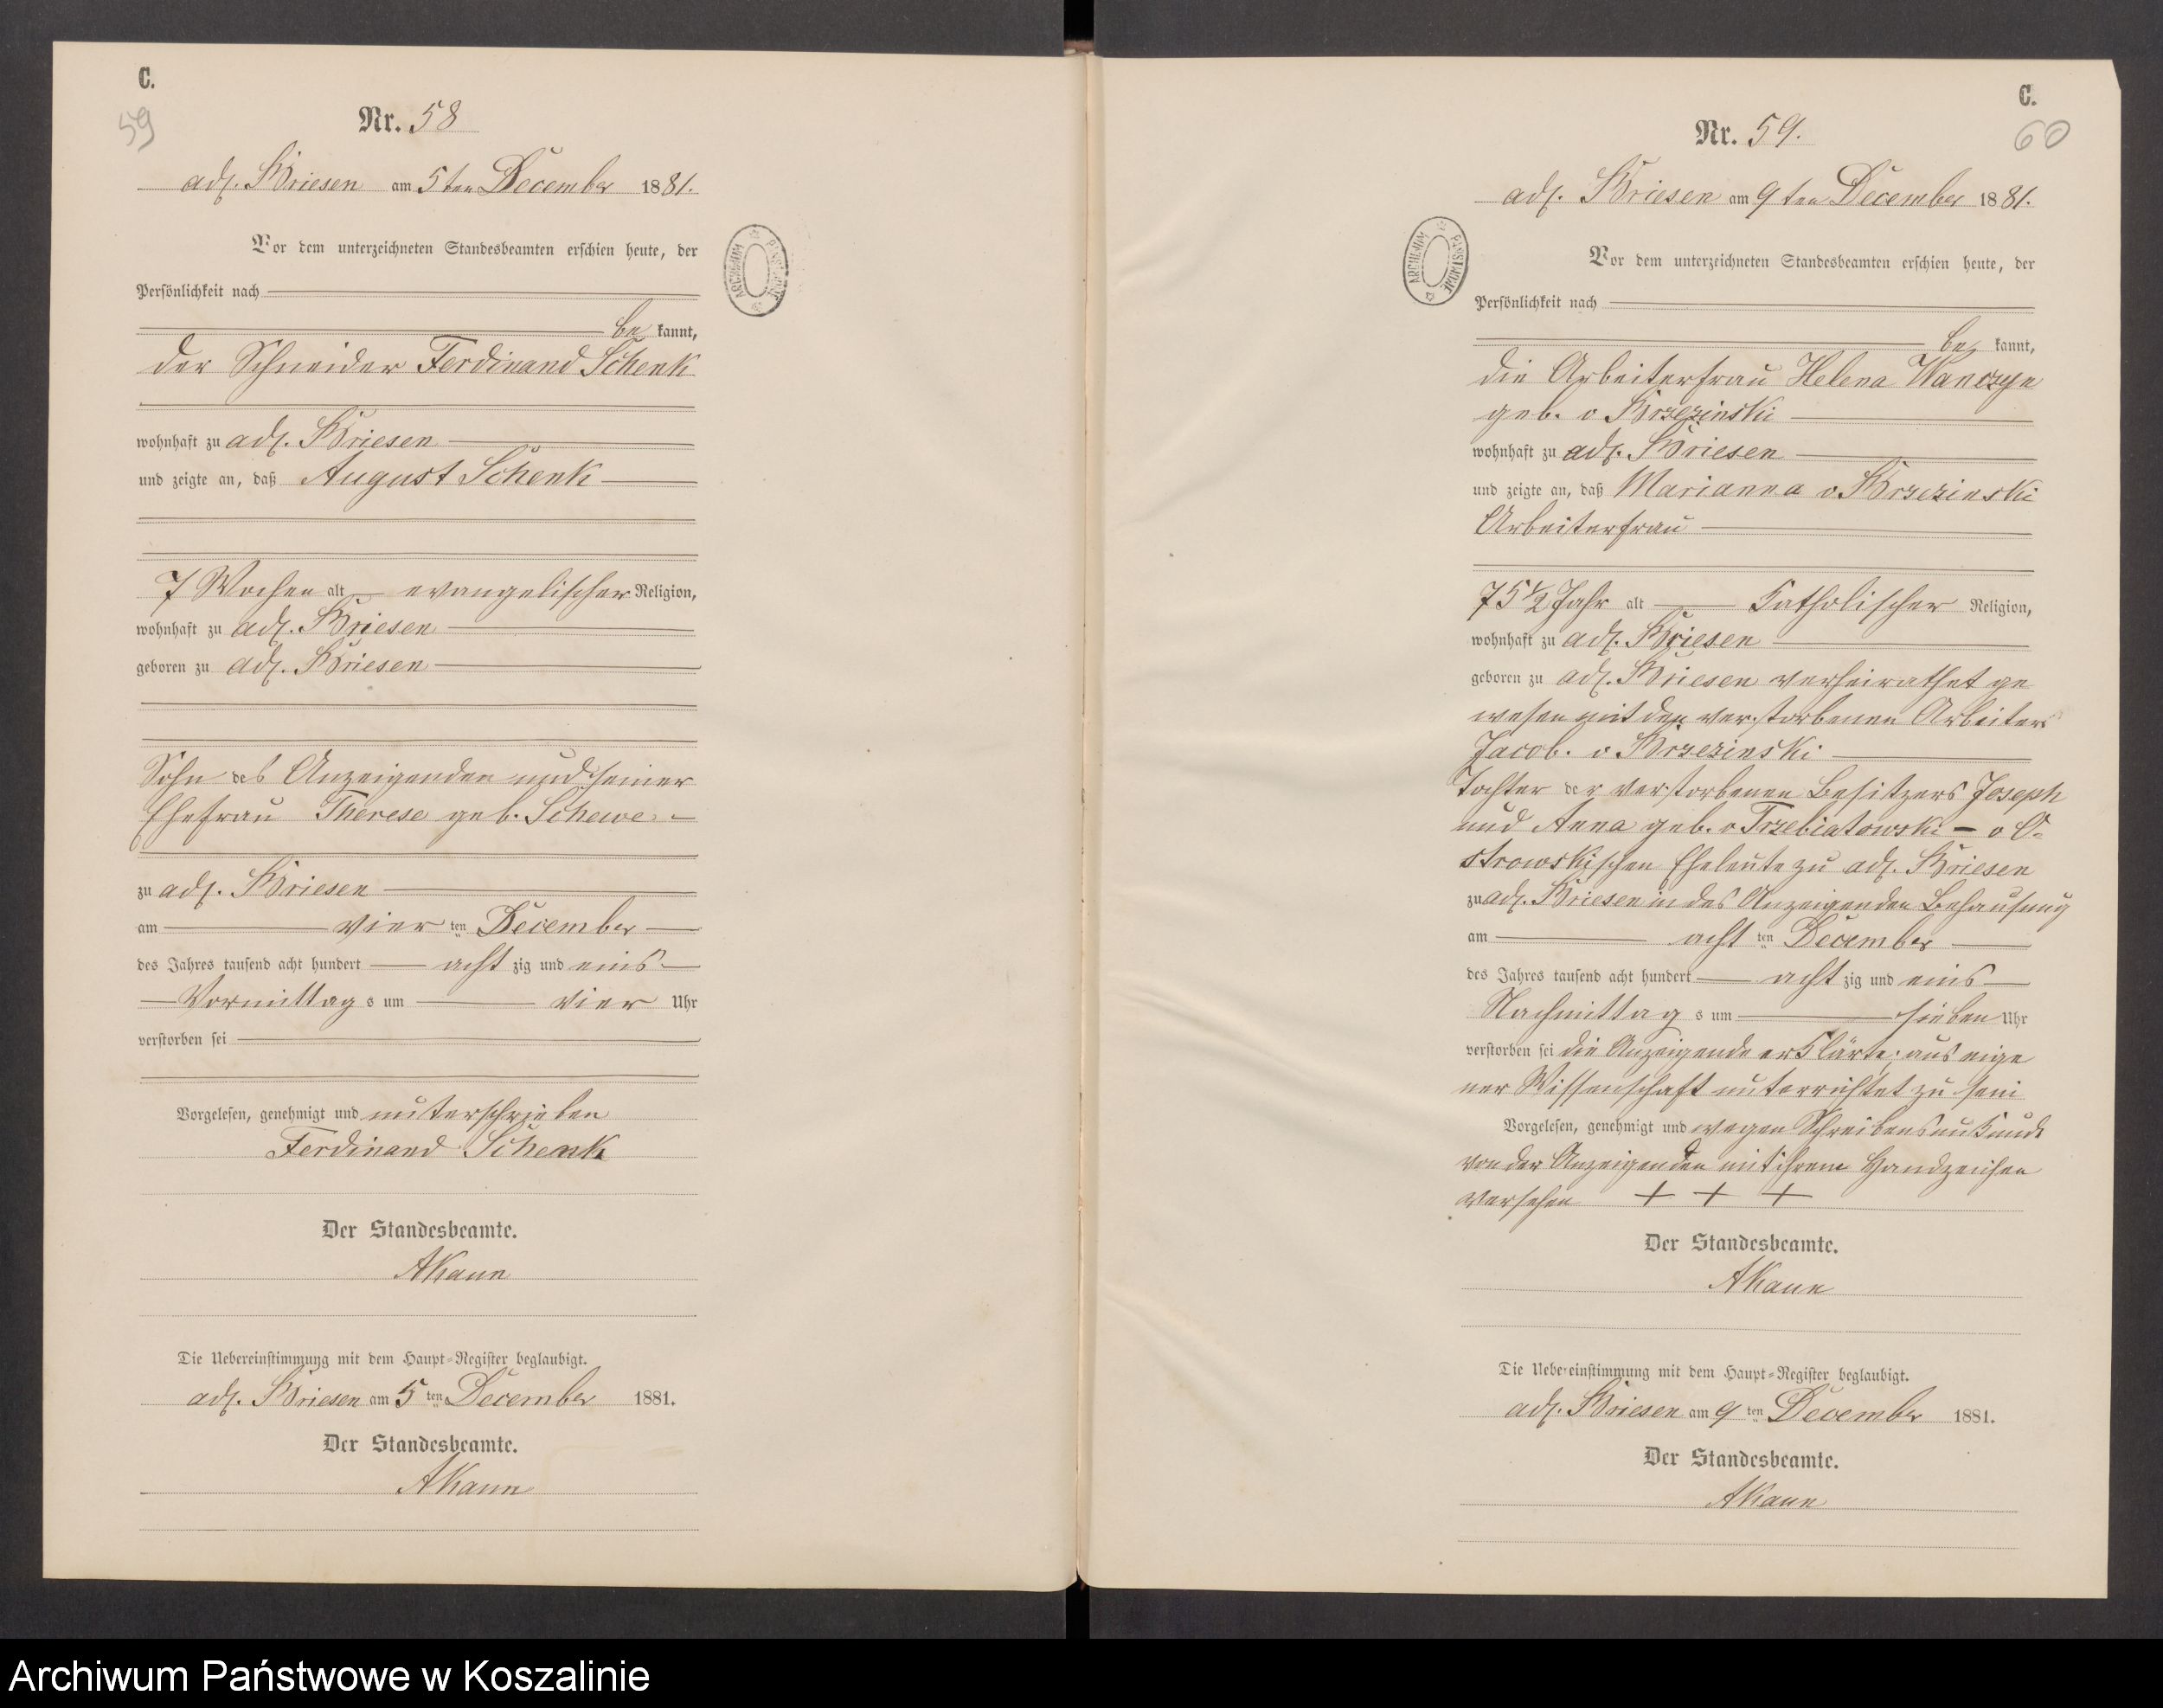 C.
59
Nr. 58
adl. Briesen am 5ten December 1881.
Vor dem unterzeichneten Standesbeamten erschien heute, der
Persönlichkeit nach
be kannt,
der Schneider Ferdinand Schenk
wohnhaft zu adl. Briesen
und zeigte an, daß August Schenk
7 Wochen alt evangelischer Religion,
wohnhaft zu adl. Briesen
geboren zu adl. Briesen
Sohn des Anzeigenden und seiner
Ehefrau Therese geb. Schewe
zu adl. Briesen
am vier ten December
des Jahres tausend acht hundert acht zig und eins
Vormittag s um vier Uhr
verstorben sei
Vorgelesen, genehmigt und unterschrieben
Ferdinand Schenk
Der Standesbeamte.
AKaun
Die Uebereinstimmung mit dem Haupt-Register beglaubigt.
adl. Briesen am 5 ten December 1881.
Der Standesbeamte.
AKaun
ARCHIWUM PAŃSTWOWE
C.
60
Nr. 59.
adl. Briesen am 9ten December 1881.
Vor dem unterzeichneten Standesbeamten erschien heute, der
Persönlichkeit nach
be kannt,
die Arbeiterfrau Helena
geb. v Brzezinski
wohnhaft zu adl. Briesen
und zeigte an, daß Marianna v. Brzezinski
Arbeiterfrau
75 1/2 Jahr alt Katholischer Religion,
wohnhaft zu adl. Briesen
geboren zu adl. Briesen verheirathet ge
wesen mit den verstorbenen Arbeiters
Jacob. v Brzezinski
Tochter der verstorbenen Besitzers Joseph
und Anna geb. v Trzebiatowski - v O-
strowskischen Eheleute zu adl. Briesen
zu adl. Briesen in des Anzeigenden Behausung
am acht ten December
des Jahres tausend acht hundert acht zig und eins
Nachmittag s um sieben Uhr
verstorben sei die Anzeigende erklärte, aus eige
ner Wissenschaft unterrichtet zu sein
Vorgelesen, genehmigt und wegen Schreibensunkunde
von der Anzeigenden mit ihrem Handzeichen
versehen + + +
Der Standesbeamte.
AKaun
Die Uebereinstimmung mit dem Haupt-Register beglaubigt.
adl. Briesen am 9 ten December 1881.
Der Standesbeamte.
AKaun
ARCHIWUM PAŃSTWOWE
Archiwum Państwowe w Koszalinie